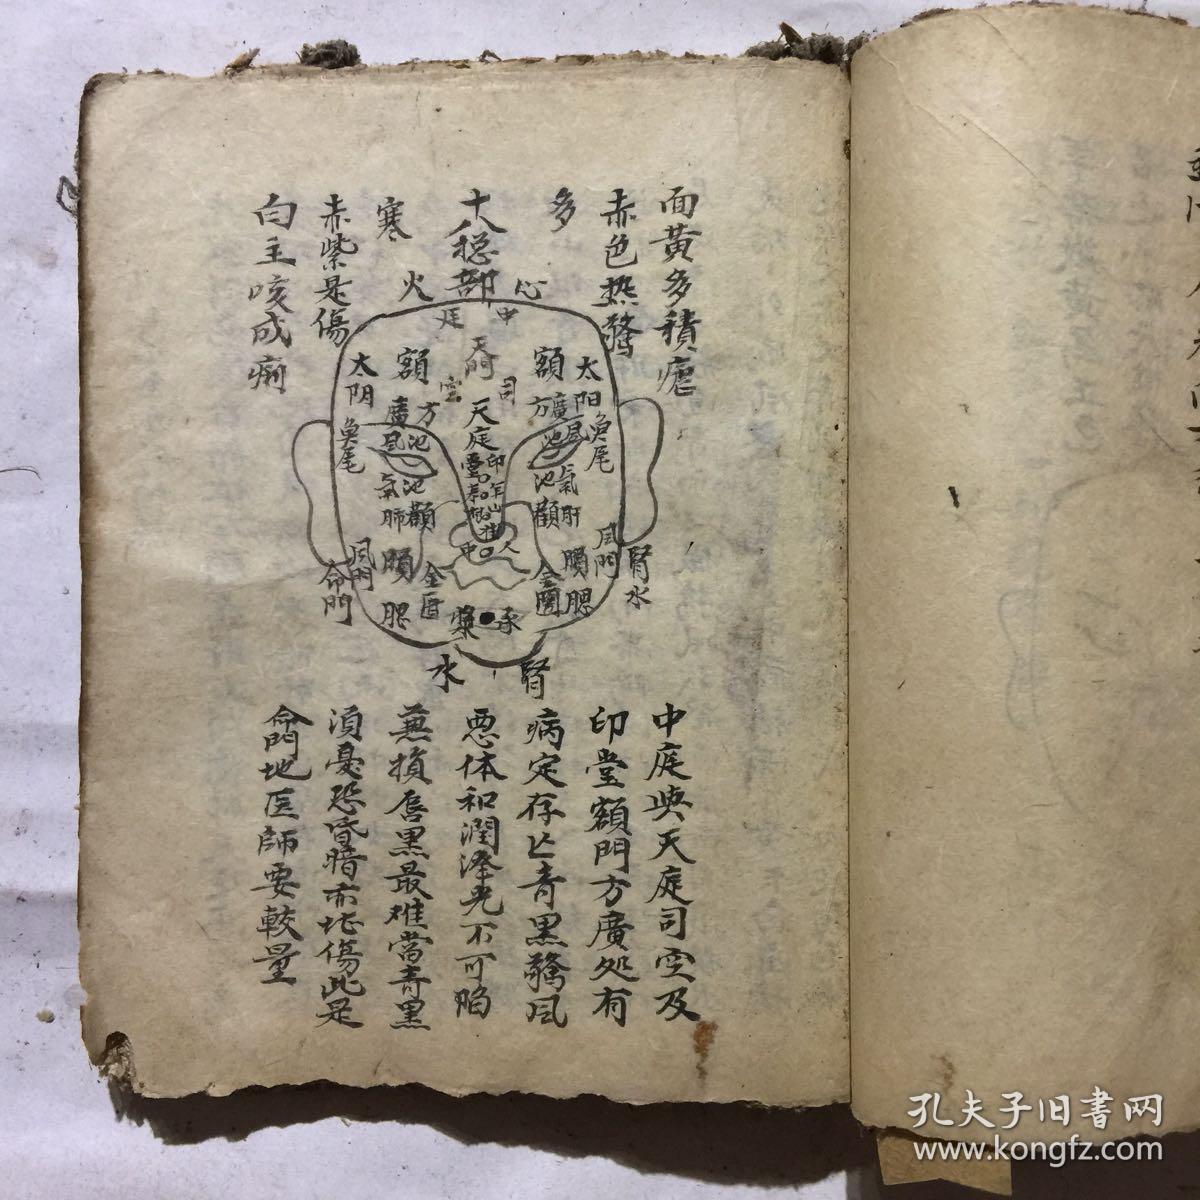 面黄多積瘧
赤色热驚
多
十八總部
寒
赤紫是傷
白主咳成痢
心
火
中
庭
天門
司
空
額
額
太阳
太阴
天庭
方
廣
方
廣
魚尾
魚尾
風池
風池
印
氣池
氣池
肝
肺
顴
顴
人
中
風門
風門
腎水
命門
腮
腮
金匱
承
漿
腎
水
中庭與天庭司空及
印堂額門方廣処有
病定存亡青黑驚风
恶体和潤澤光不可陷
兼損唇黑最难當青黑
須憂恐昏暗亦堪傷此是
命門地医師要較量
孔夫子旧書网
www.kongfz.com